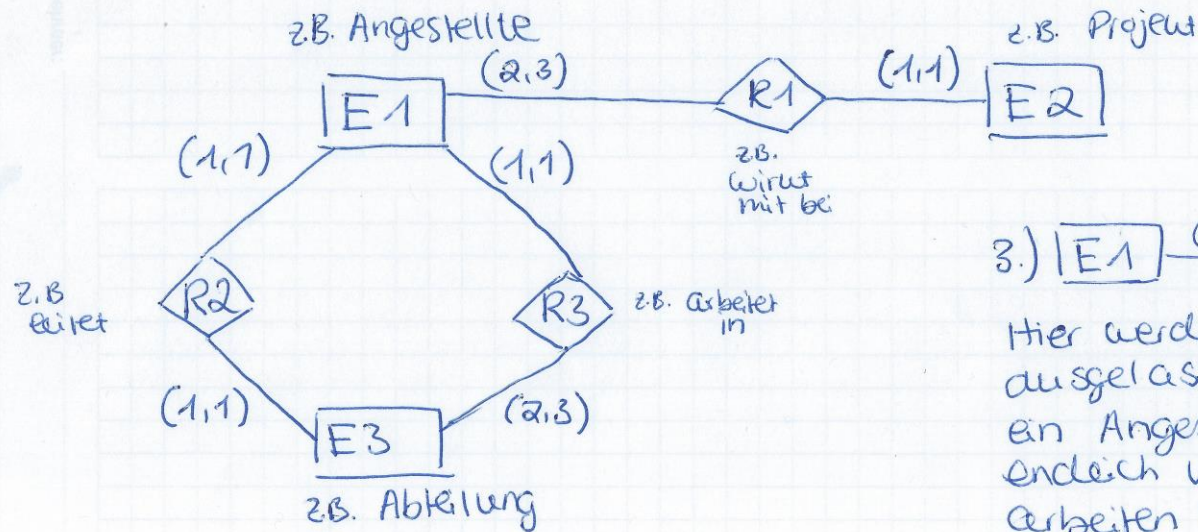 z.B. Angestellte
z.B. Projekt
E1
(2,3)
R1
(1,1)
E2
z.B.
wirkt
mit bei
(1,1)
(1,1)
z.B
leitet
R2
R3
z.B. arbeitet
in
(1,1)
E3
(2,3)
z.B. Abteilung
3.) E1 (
Hier werd
ausgelas
ein Anges
endlich
arbeiten